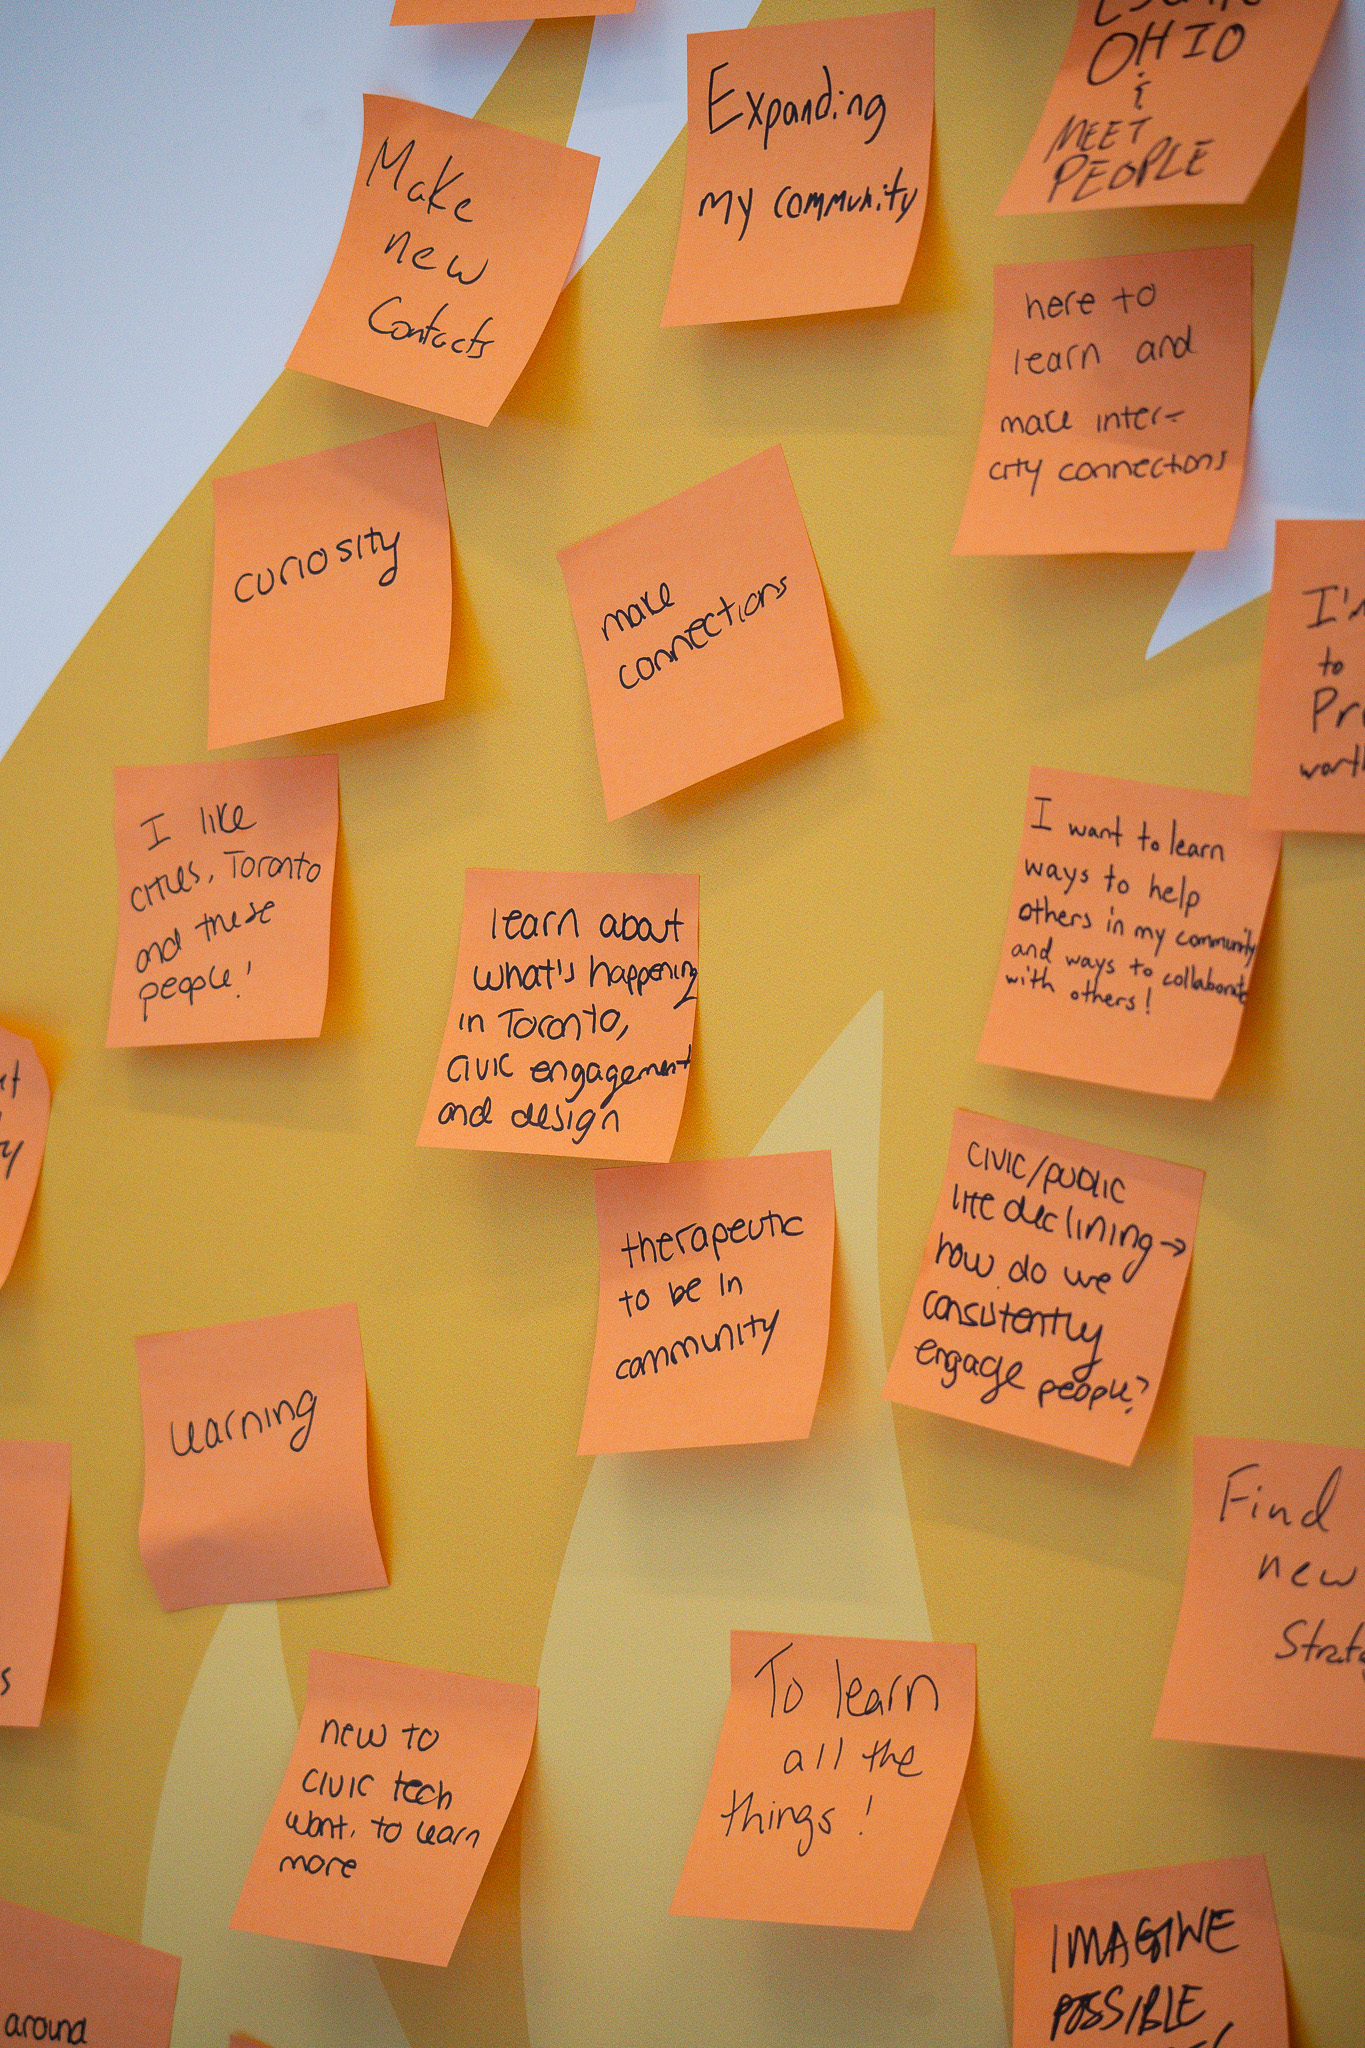 Make
new
Contacts
Expanding
my community
OHIO
&
MEET
PEOPLE
here to
learn and
make inter-
city connections
curiosity
make
connections
I'm
to
worth
I like
cities, Toronto
and these
people!
learn about
what's happening
in Toronto,
civic engagement
and design
I want to learn
ways to help
others in my community
and ways to collaborate
with others!
therapeutic
to be in
community
civic/public
life declining →
how do we
consistently
engage people?
learning
Find
new
new to
civic tech
want. to learn
more
To learn
all the
things!
IMAGINE
POSSIBLE
around